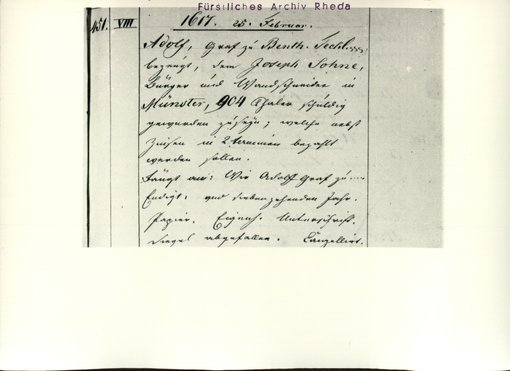 Fürstliches Archiv Rheda
451. VIII. 1617. 25. Februar.
Adolf, Graf zu Benth. Teckl.
bezeugt, dem Joseph Sohne,
Bürger und Wandschneider in
Münster, 904 Thaler schuldig
geworden zu seyn; welche nebst
Zinsen in 2 terminen bezahlt
werden sollen.
Fängt an: Wir Adolff Graf zu....
Endigt: und siebenzehenden Jahr.
Papier. Eigenh. Unterschrift.
Siegel abgefallen. Cancellirt.